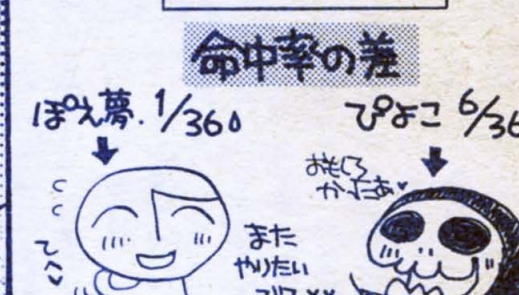 命中率の差
ぽえ夢. 1/36
ぴよこ 6/36
おもしろ
かったあ♥
また
やりたい
てへ